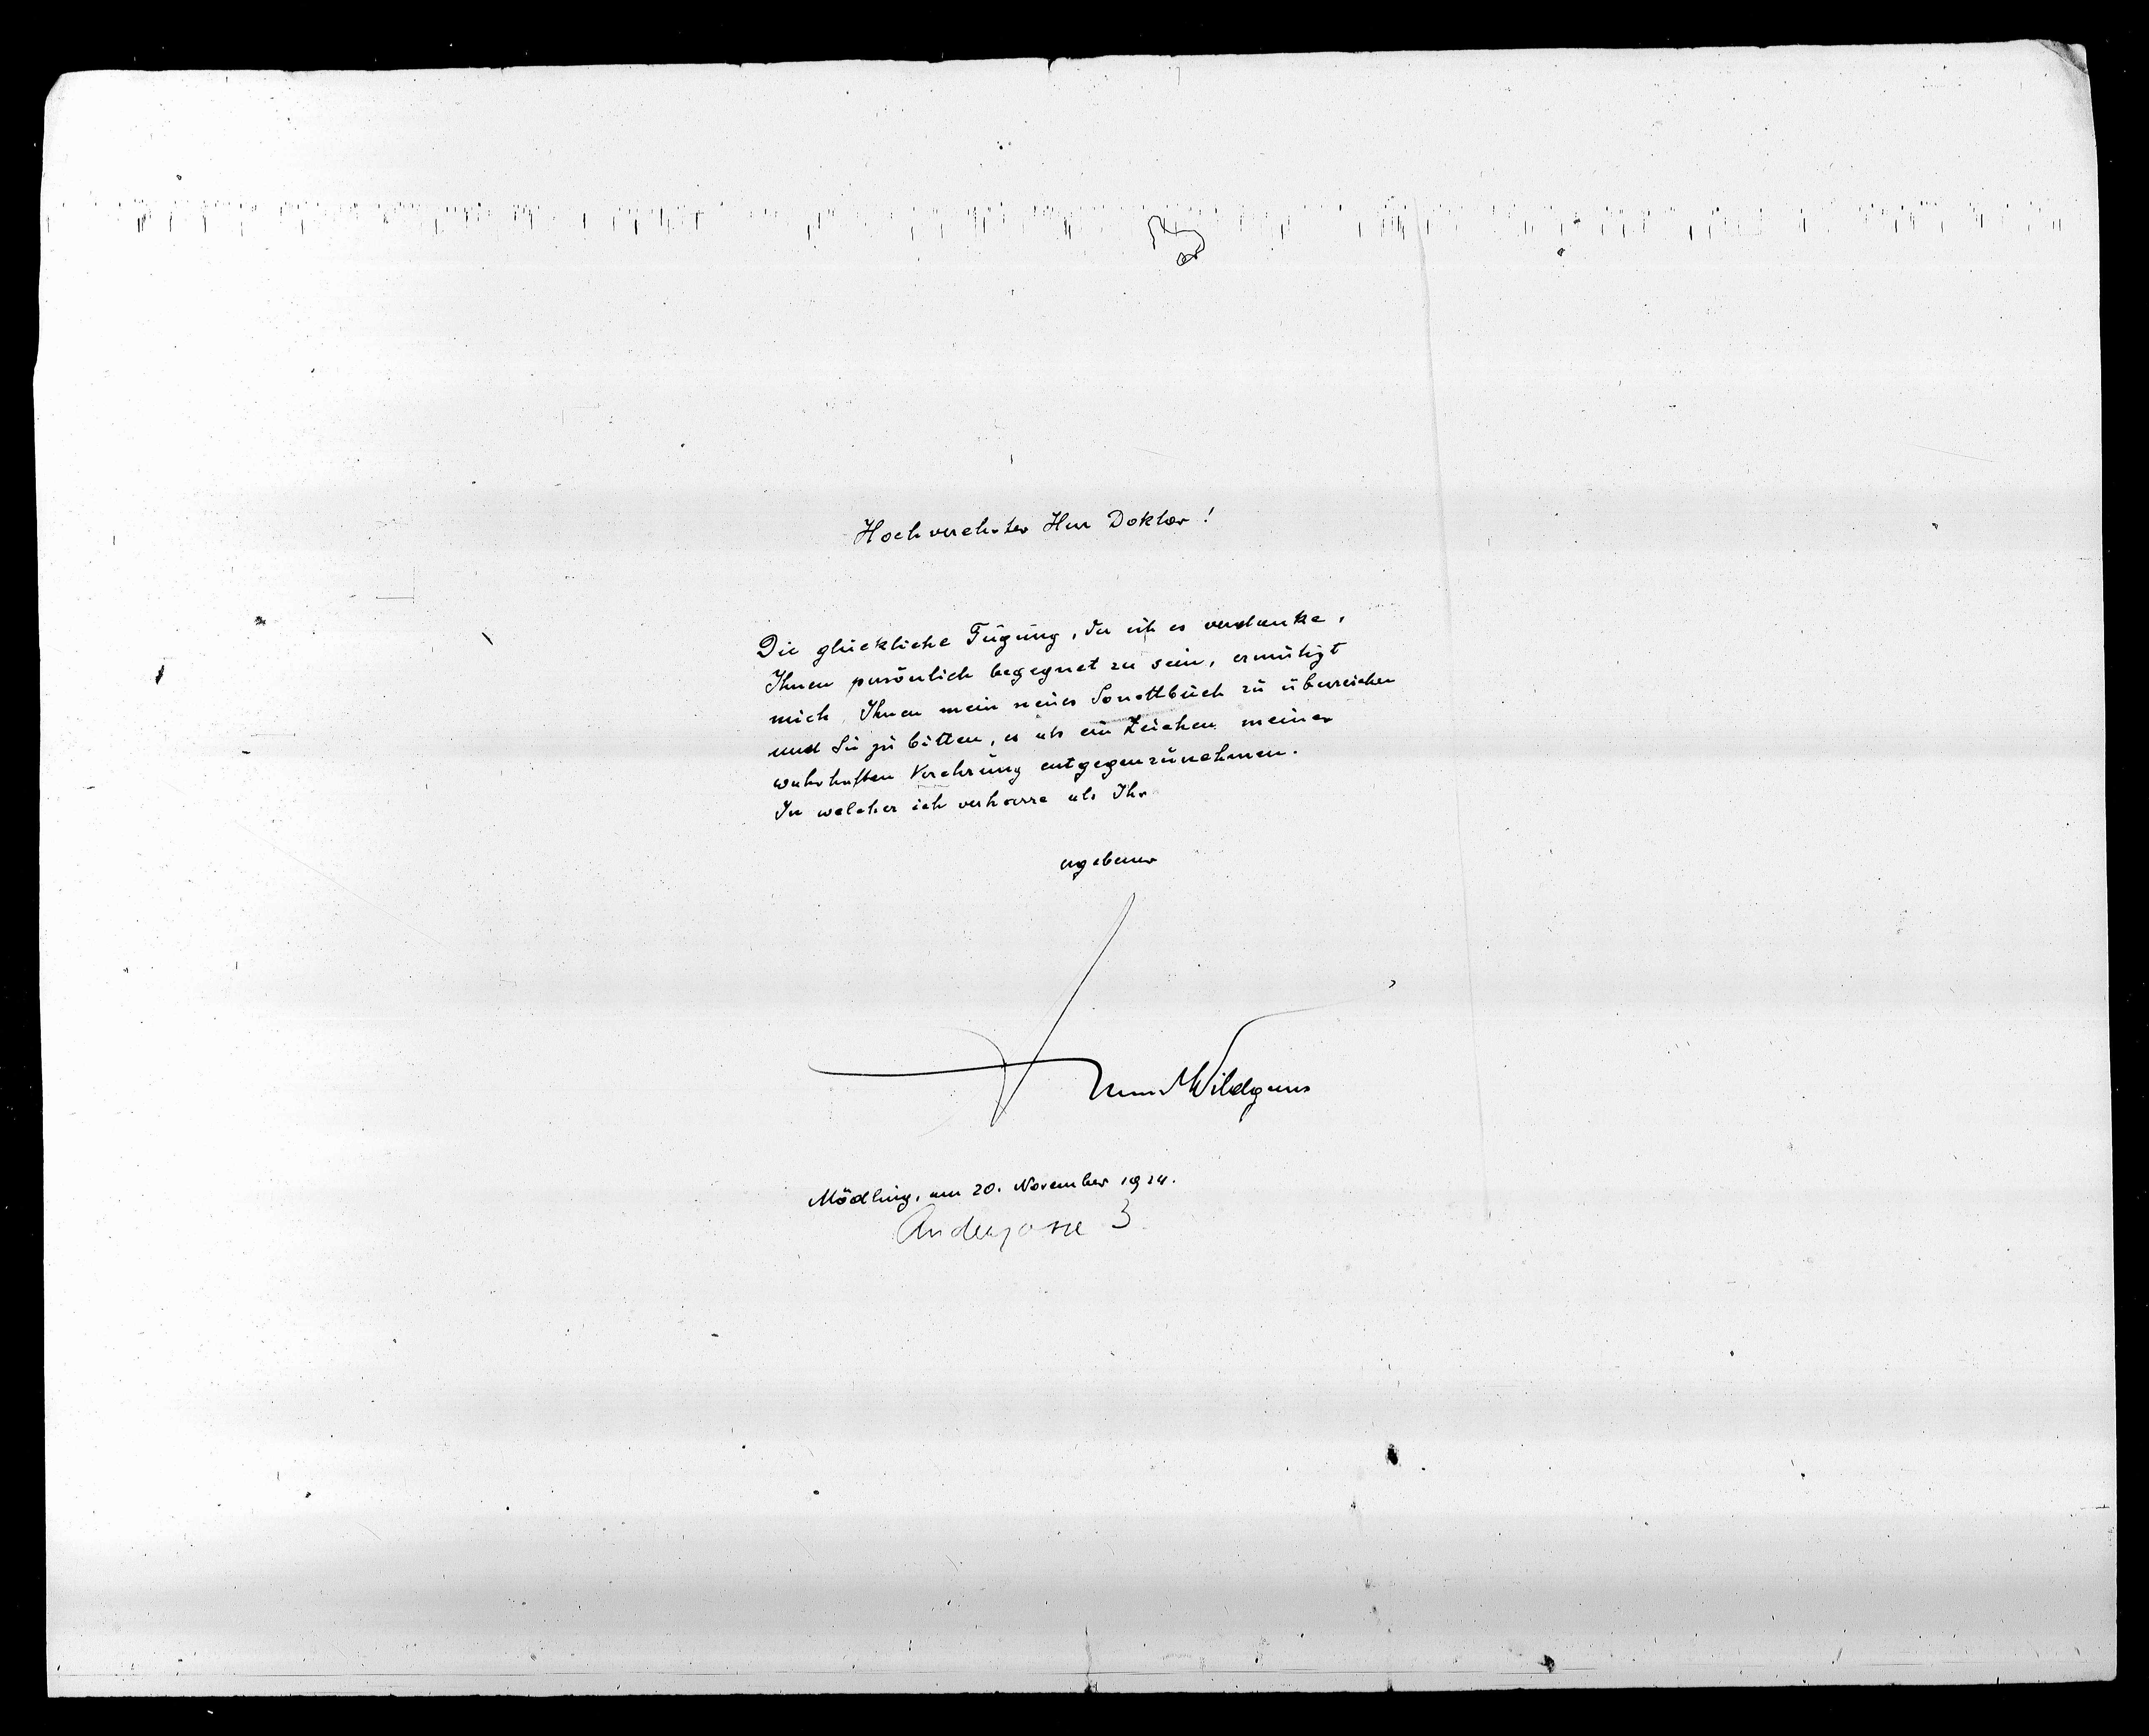 Hochverehrter Herr Doktor!
Die glückliche Fügung, der ich es verdanke,
Ihnen persönlich begegnet zu sein, ermutigt
mich, Ihnen mein neues Sonettbuch zu überreichen
und Sie zu bitten, es als ein Zeichen meiner
wahrhaften Verehrung entgegenzunehmen.
In welcher ich verharre als Ihr
ergebener
Wildgans
Mödling, am 20. November 1924.
3